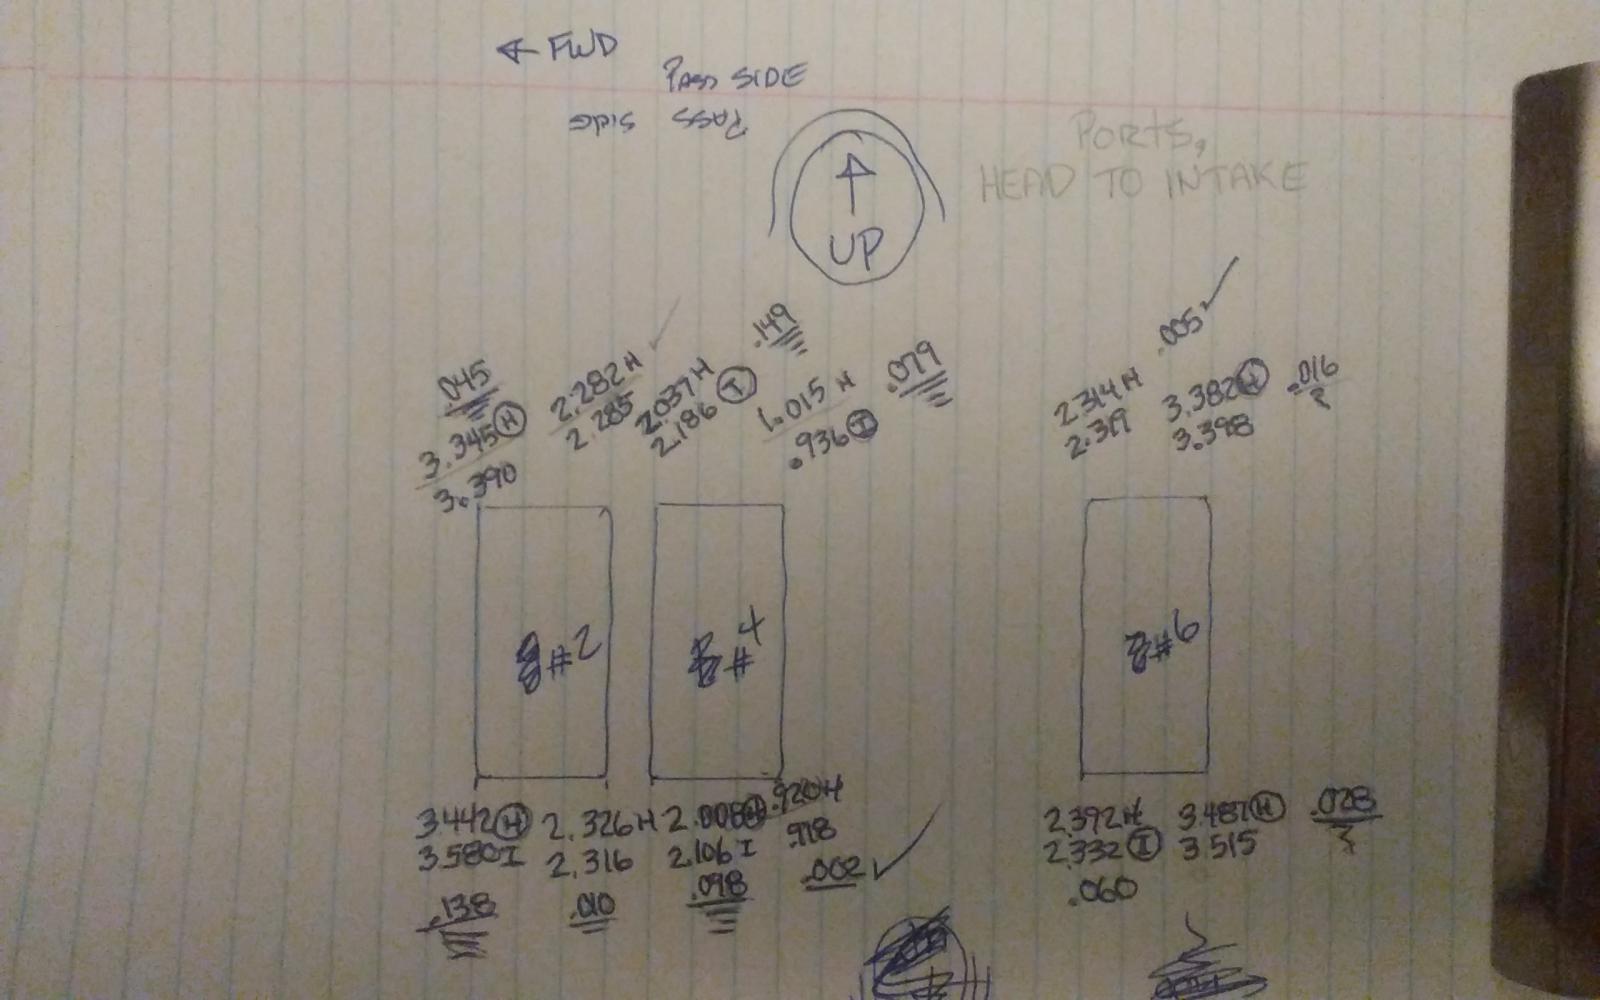 ← FWD
PASS SIDE
PASS Side
PORTS,
HEAD TO INTAKE
↑
UP
.045
3.345 H
3.390
2.282 H
2.285
2.037 H
2.186 I
.149
1.015 H
.936 I
.079
2.314 H
2.319
.005 ✓
3.382 H
3.398
.016
?
#2
#4
#6
3.442 H
3.580 I
.138
2.326 H
2.316
.010
2.008 H
2.106 I
.098
.920 H
.918
.002 ✓
2.392 H
2.332 I
.060
3.487 H
3.515
.028
?